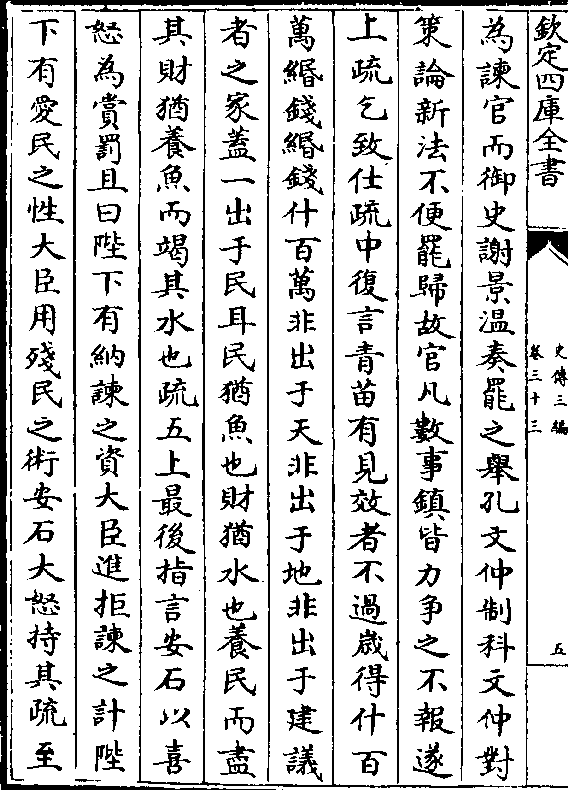 欽定四庫全書
史傳三編
卷三十三
五
為諫官而御史謝景温奏罷之舉孔文仲制科文仲對
策論新法不便罷歸故官凡數事鎮皆力争之不報遂
上疏乞致仕疏中復言青苗有見效者不過歲得什百
萬緡錢緡錢什百萬非出于天非出于地非出于建議
者之家蓋一出于民耳民猶魚也財猶水也養民而盡
其財猶養魚而竭其水也疏五上最後指言安石以喜
怒為賞罰且曰陛下有納諫之資大臣進拒諫之計陛
下有愛民之性大臣用殘民之術安石大怒持其疏至